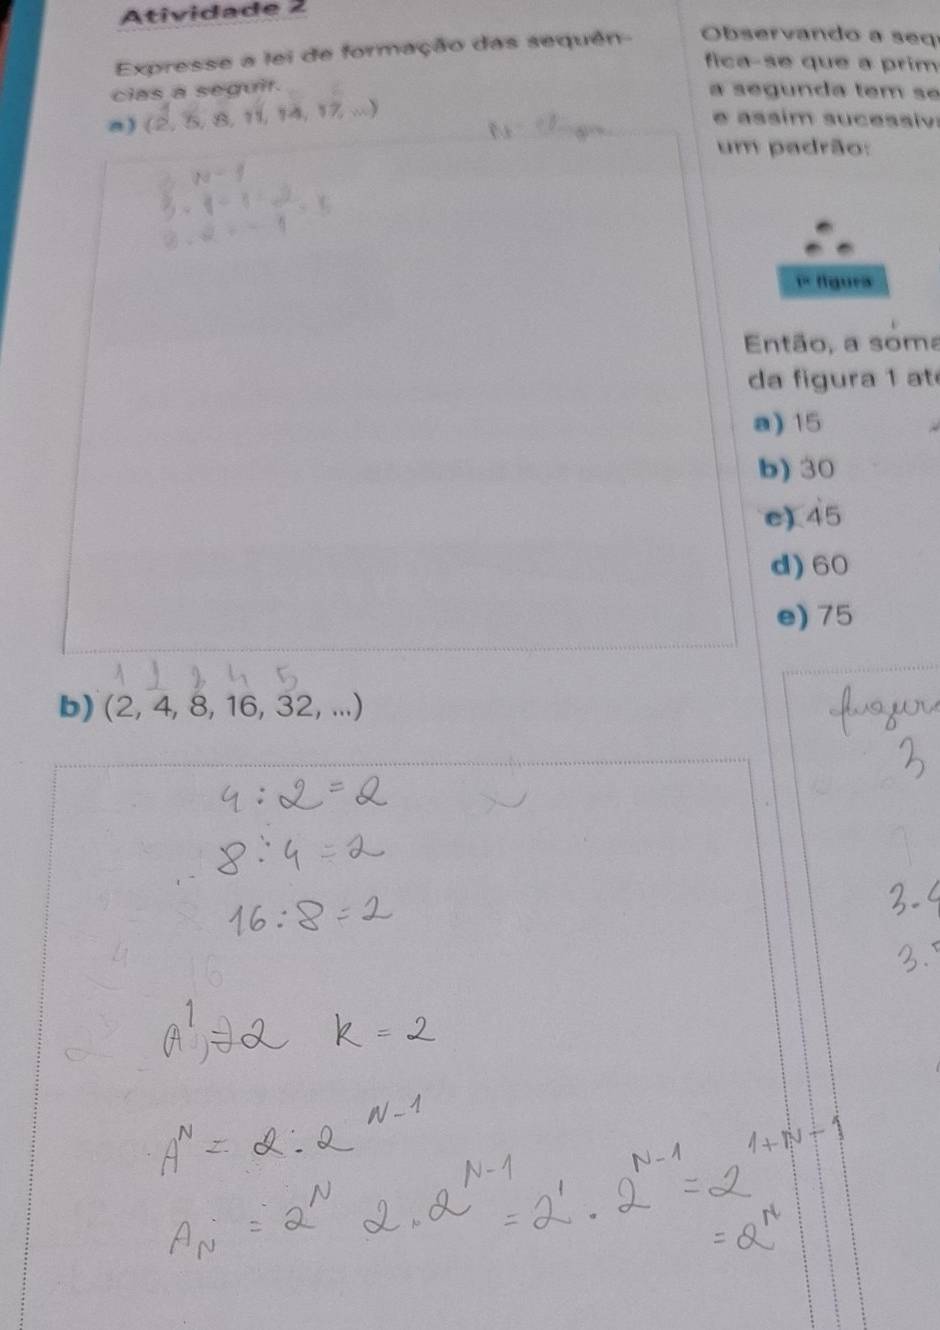 Atividade 2
Expresse a lei de formação das sequên-
cias a seguir.
a) (2, 5, 8, 11, 14, 17, ...)
N-1
b) (2, 4, 8, 16, 32, ...)
4:2=2
8:4=2
16:8=2
k=2
A^N = 2.2^N-1
A_N = 2^N 2.2^N-1 = 2^1.2^N-1 = 2^1+N-1
= 2^N
Observando a seq
fica-se que a prim
a segunda tem se
e assim sucessiv
um padrão:
1ª figura
Então, a soma
da figura 1 at
a) 15
b) 30
c) 45
d) 60
e) 75
3
3.
3.